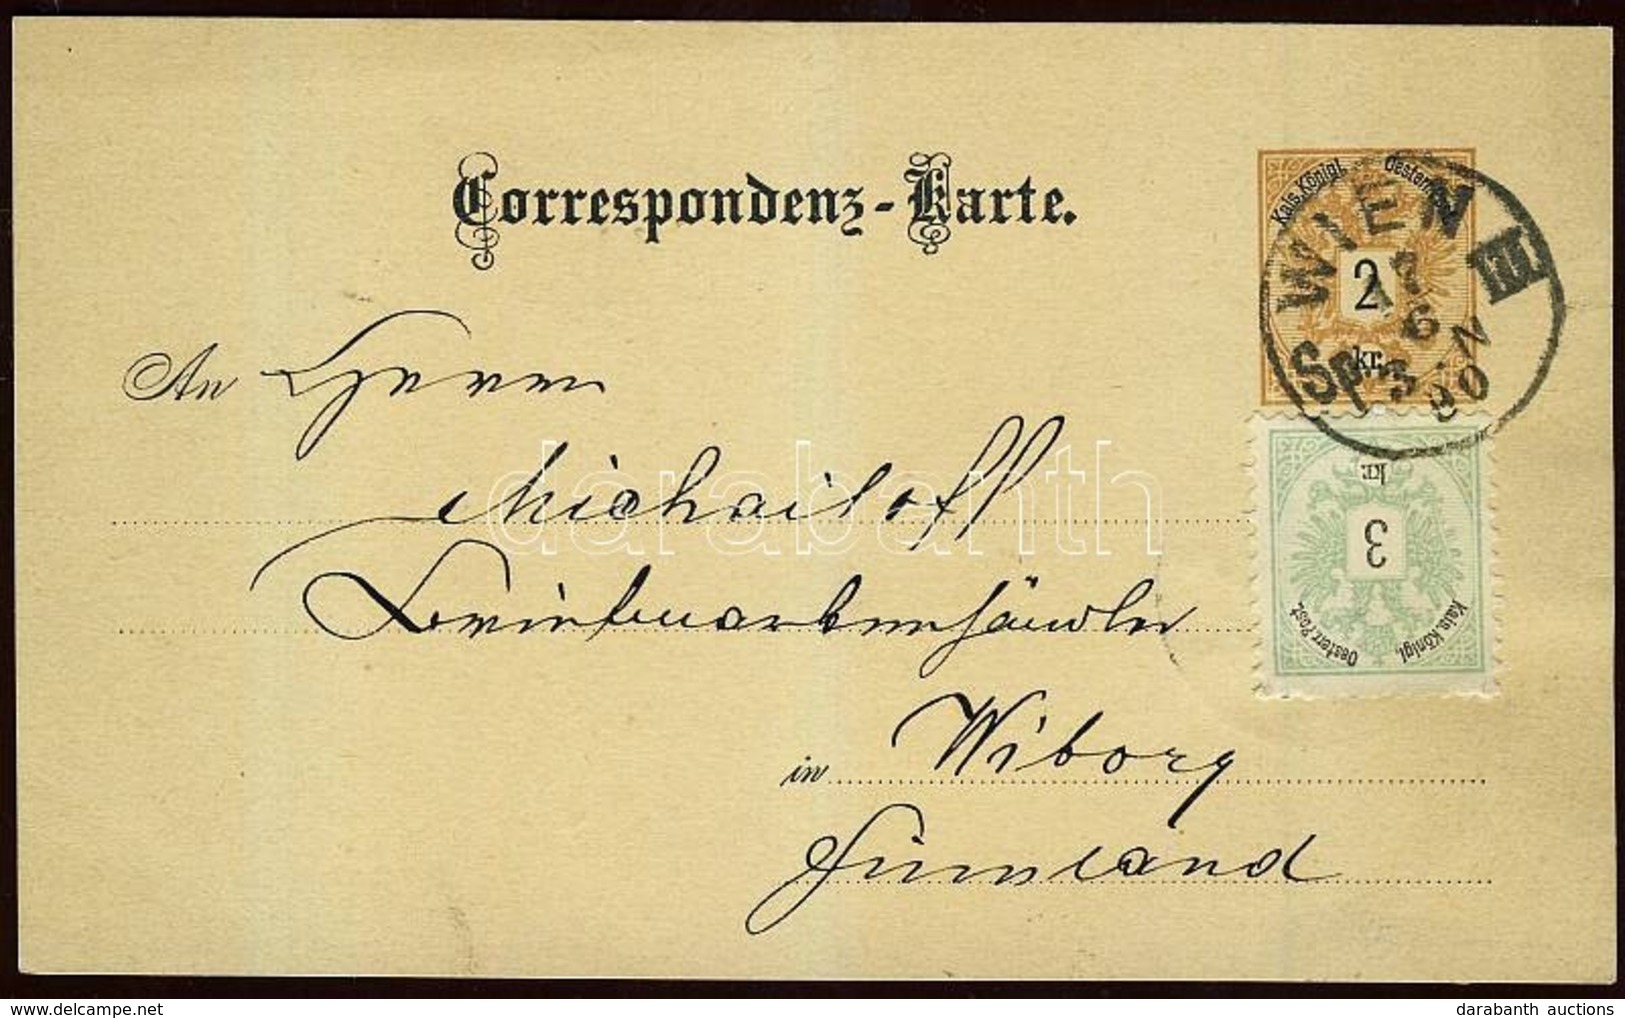 Correspondenz-Karte.
Kais. Königl. Oesterr.
2
kr.
WIEN III
17
6
3-N
90
An Herrn
Michailoff
Briefmarkenhändler
kr.
3
Kais. Königl.
Oesterr. Post.
in Wiborg
Finnland
darabanth
darabanth auctions